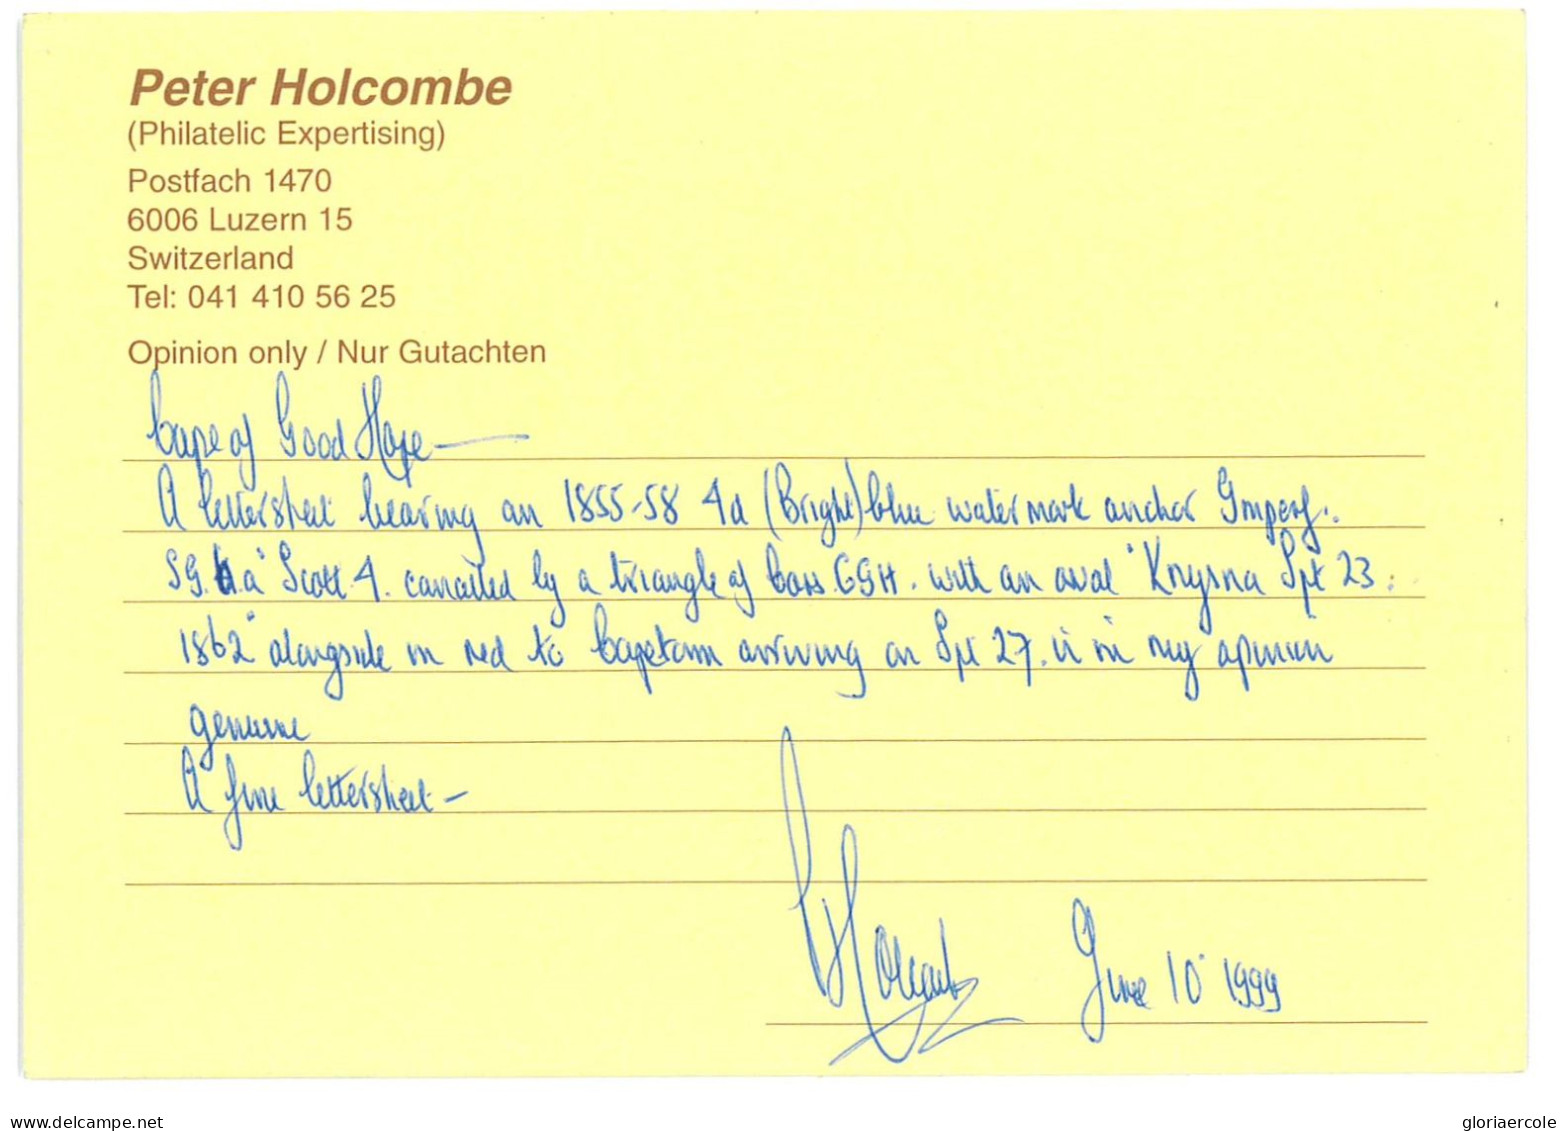 Peter Holcombe
(Philatelic Expertising)
Postfach 1470
6006 Luzern 15
Switzerland
Tel: 041 410 56 25
Opinion only / Nur Gutachten
Cape of Good Hope —
A lettersheet bearing an 1855-58 4d (Bright) blue watermark anchor Imperf.
SG. 6.a Scott 4. cancelled by a triangle of bars CGH. with an oval "Knysna Spt 23
1862" alongside in red to Capetown arriving on Spt 27. is in my opinion
genuine
A fine lettersheet —
PHolcombe June 10 1999
www.delcampe.net
gloriaercole